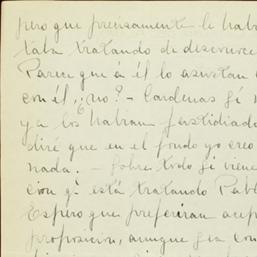 pero que precisamente le habra
taba tratando de discurrir
Parece que á él lo asustan
con él, ¿no? – Cardenas si
ya los habran fastidiado
diré que en el fondo yo creo
nada. – Sobre todo si viene
cion qi está tratando Pabl
Espero que preferiran acep
proposicion, aunque sea con